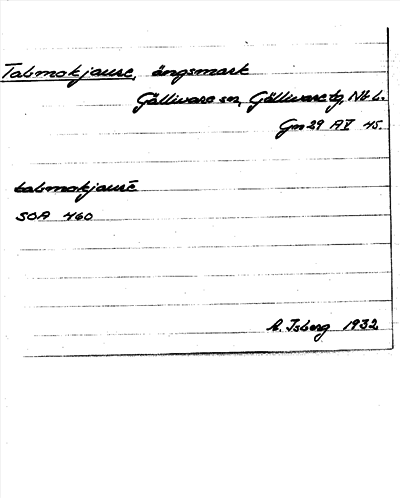 Tabmokjaure, ängsmark
Gällivare sn, Gällivare tg, Nb L.
Gm 29 A V 45.
tabmokjaurē
SOA 460
A. Isberg 1932